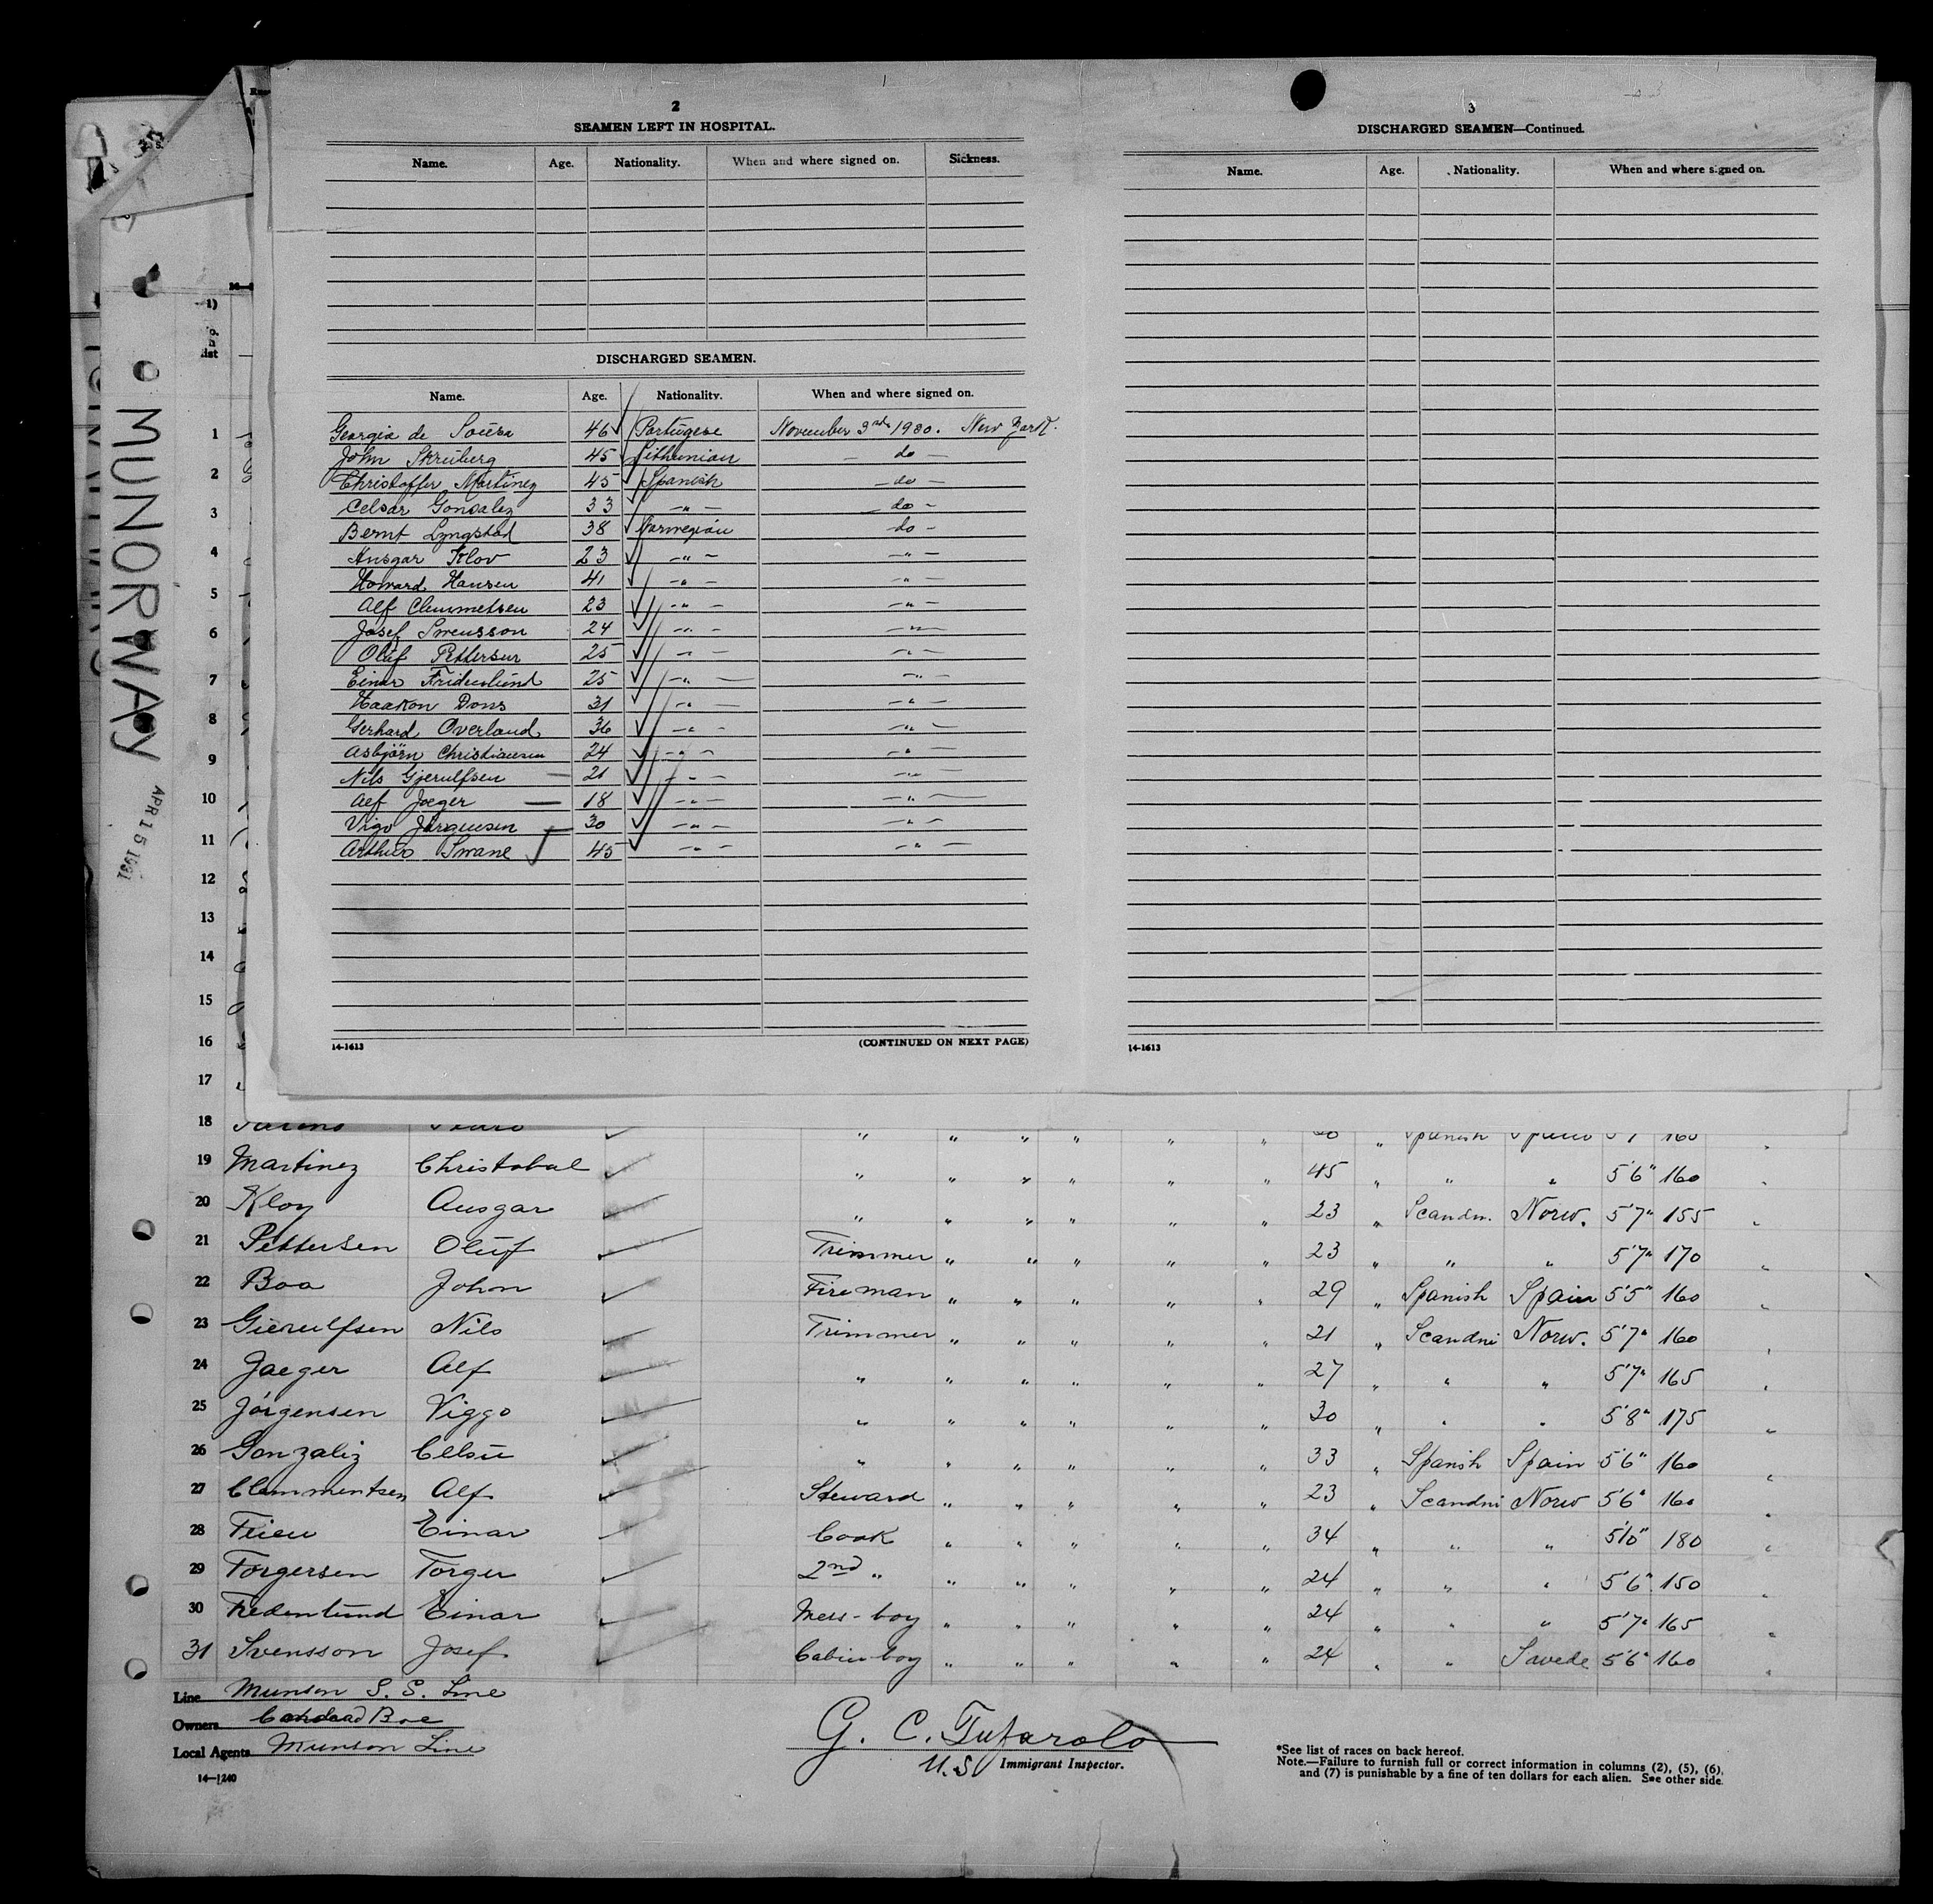 2
SEAMEN LEFT IN HOSPITAL.
Name. Age. Nationality. When and where signed on. Sickness.
DISCHARGED SEAMEN.
Name. Age. Nationality. When and where signed on.
Georgia de Souza 46 Portugese November 3rd 1930. New York.
John Skruberg 45 Lithunian - do -
Christoffer Martinez 45 Spanish - do -
Celsar Gonsalez 33 -"- - do -
Bernt Lyngstad 38 Norwegian - do -
Ansgar Klov 23 -"- -"-
Howard Hansen 41 -"- -"-
Alf Clemmetsen 23 -"- -"-
Josef Swensson 24 -"- -"-
Oluf Pettersen 25 -"- -"-
Einar Fridenlund 25 -"- -"-
Haakon Dons 31 -"- -"-
Gerhard Overland 36 -"- -"-
Asbjörn Christiansen 24 -"- -"-
Nils Gjerulfsen 21 -"- -"-
Alf Jaeger 18 -"- -"-
Vigo Jørgensen 30 -"- -"-
Arthur Swane 45 -"- -"-
14-1613 (CONTINUED ON NEXT PAGE)
3
DISCHARGED SEAMEN—Continued.
Name. Age. Nationality. When and where signed on.
14-1613
MUNORWAY
APR 15 1931
1)
list
1
2
3
4
5
6
7
8
9
10
11
12
13
14
15
16
17
18
19 Martinez Christobal " " " " " " 45 " " " 5'6" 160 "
20 Kloy Ausgar " " " " " " 23 " Scandn. Norw. 5'7" 155 "
21 Pettersen Oluf Trimmer " " " " " 23 " " " 5'7" 170 "
22 Boa John Fireman " " " " " 29 " Spanish Spain 5'5" 160 "
23 Gierulfsen Nils Trimmer " " " " " 21 " Scandni Norw. 5'7" 160 "
24 Jaeger Alf " " " " " " 27 " " " 5'7" 165 "
25 Jörgensen Viggo " " " " " " 30 " " " 5'8" 175 "
26 Gonzaliz Celsu " " " " " " 33 " Spanish Spain 5'6" 160 "
27 Clemmentsen Alf Steward " " " " " 23 " Scandni Norw 5'6" 160 "
28 Feieu Einar Cook " " " " " 34 " " " 5'10" 180 "
29 Torgersen Torger 2nd " " " " " " 24 " " " 5'6" 150 "
30 Fredenlund Einar Mess-boy " " " " " 24 " " " 5'7" 165 "
31 Svensson Josef Cabin boy " " " " " 24 " " Swede 5'6" 160 "
Line Munson S. S. Line
Owners Boe
Local Agents Munson Line
14-1240
G. C. Tufarolo
U.S. Immigrant Inspector.
*See list of races on back hereof.
Note.—Failure to furnish full or correct information in columns (2), (5), (6),
and (7) is punishable by a fine of ten dollars for each alien. See other side.